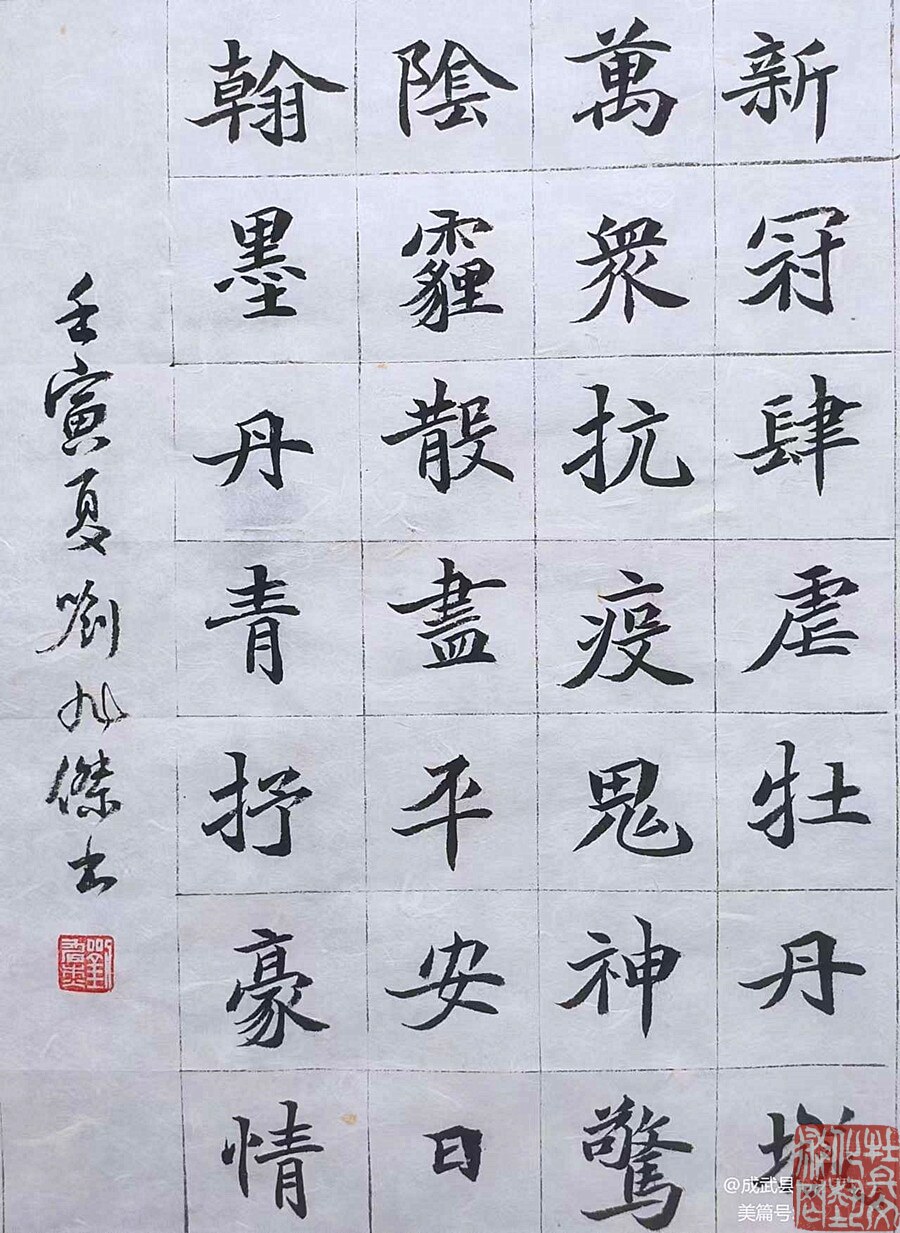 新冠肆虐牡丹城
萬衆抗疫鬼神驚
陰霾散盡平安日
翰墨丹青抒豪情
壬寅夏劉旭傑書
@成武县
美篇号: